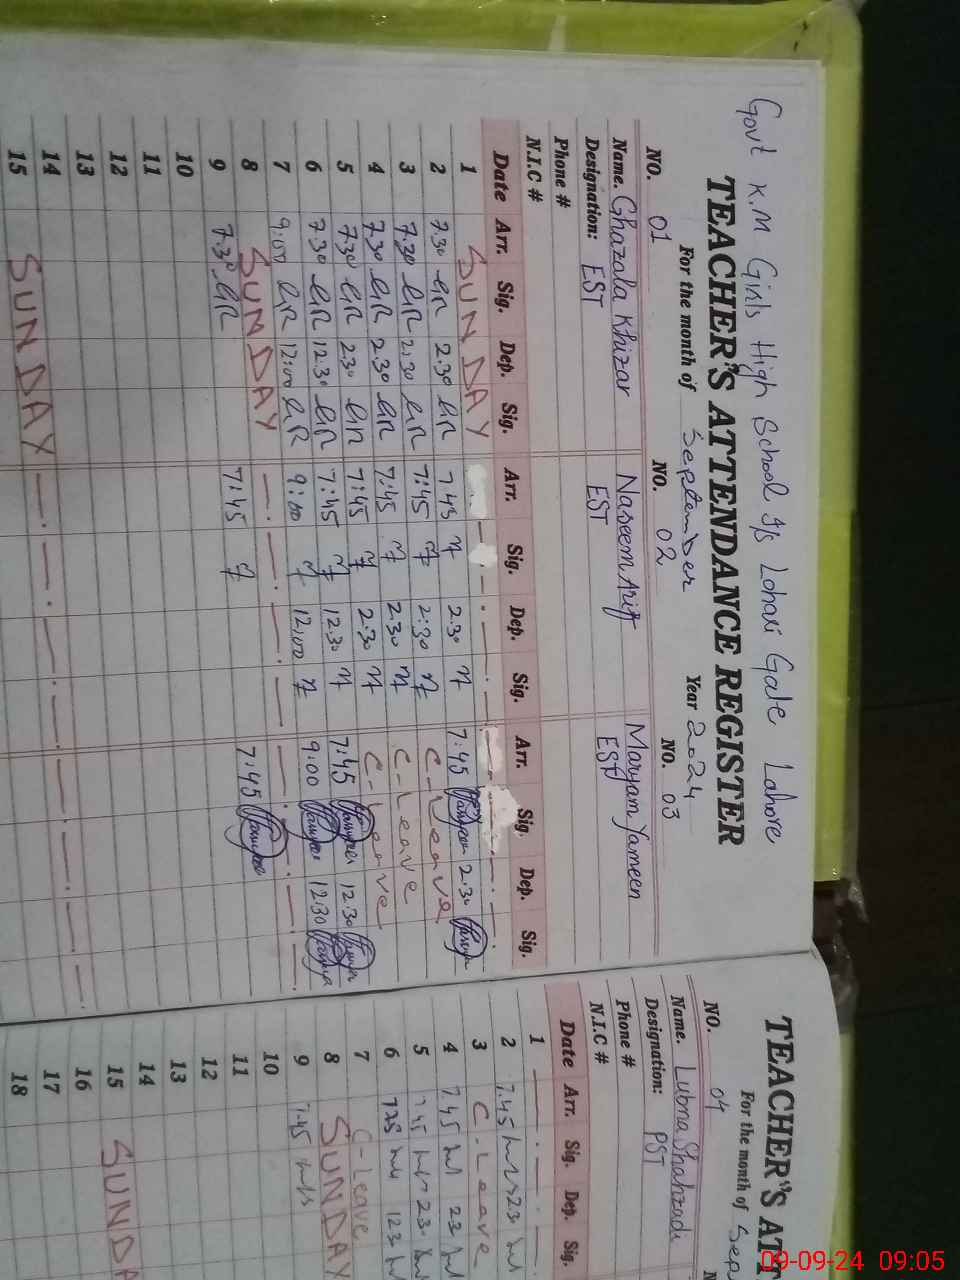 Govt K.M Girls High School I/s Lohari Gate Lahore
TEACHER'S ATTENDANCE REGISTER
For the month of September Year 2024
NO. 01 NO. 02 NO. 03
Name. Ghazala Khizar Naseem Arif Maryam Yameen
Designation: EST EST EST
Phone #
N.I.C #
Date Arr. Sig. Dep. Sig. Arr. Sig. Dep. Sig. Arr. Sig. Dep. Sig.
1 SUNDAY
2 7.30 2.30 7 45 2.30 7:45 2.30
3 7.30 2.30 7:45 2:30 C-Leave
4 7.30 2.30 7:45 2.30 C-Leave
5 7.30 2.30 7:45 2.30 C-Leave
6 7.30 12.30 7:45 12.30 7:45 12.30
7 9.00 12:00 9:00 12:00 9:00 12:30
8 SUNDAY
9 7.30 7:45 7:45
10
11
12
13
14
15 SUNDAY
TEACHER'S AT
For the month of Sep
NO. 04
Name. Lubna Shahzadi
Designation: PST
Phone #
N.I.C #
Date Arr. Sig. Dep. Sig.
1
2 7.45
3 C-Leave
4 7.45
5 7.45
6
7 C-Leave
8 SUNDAY
9 7.45
10
11
12
13
14
15 SUNDA
16
17
18
09-09-24 09:05